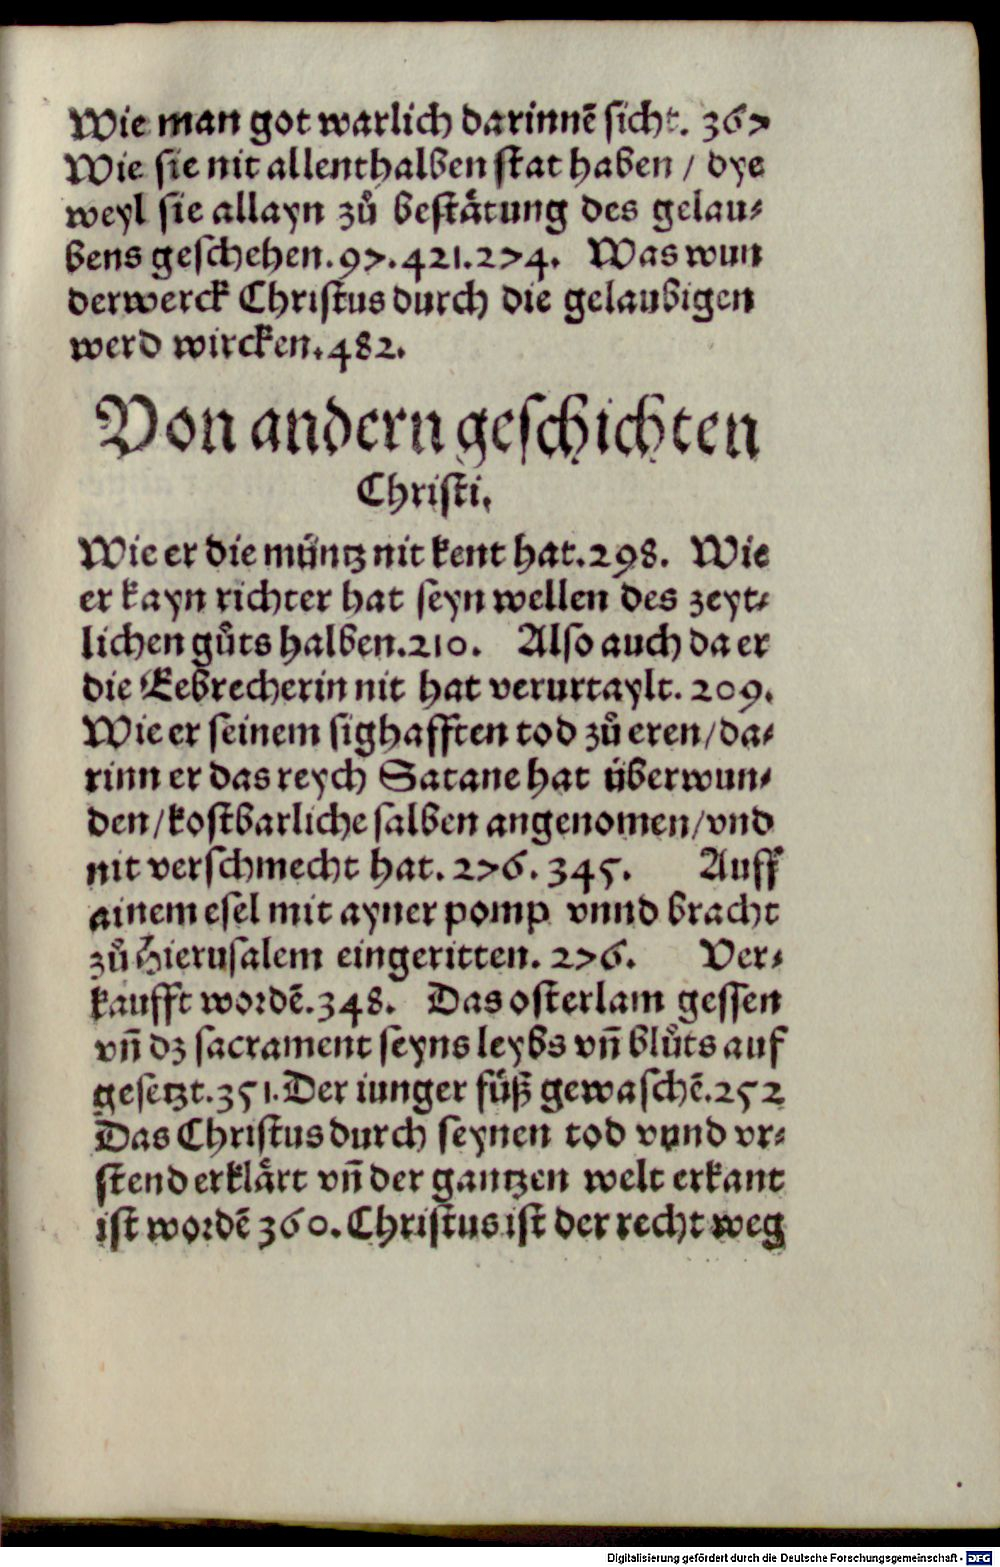 Wie man got warlich darinnē sicht. 367
Wie sie nit allenthalben stat haben / dye
weyl sie allayn zů beståtung des gelau⸗
bens geschehen. 97. 421. 274. Was wun
derwerck Christus durch die gelaubigen
werd wircken. 482.
Von andern geschichten
Christi.
Wie er die müntz nit kent hat. 298. Wie
er kayn richter hat seyn wellen des zeyt⸗
lichen gůts halben. 210. Also auch da er
die Eebrecherin nit hat verurtaylt. 209.
Wie er seinem sighafften tod zů eren / da⸗
rinn er das reych Satane hat überwun⸗
den / kostbarliche salben angenomen / vnd
nit verschmecht hat. 276. 345. Auff
ainem esel mit ayner pomp vnnd bracht
zů Hierusalem eingeritten. 276. Ver⸗
kaufft wordē. 348. Das osterlam gessen
vñ dz sacrament seyns leybs vñ blůts auf
gesetzt. 351. Der iunger füß gewaschē. 252
Das Christus durch seynen tod vnnd vr⸗
stend erklårt vñ der gantzen welt erkant
ist wordē 360. Christus ist der recht weg
Digitalisierung gefördert durch die Deutsche Forschungsgemeinschaft - DFG